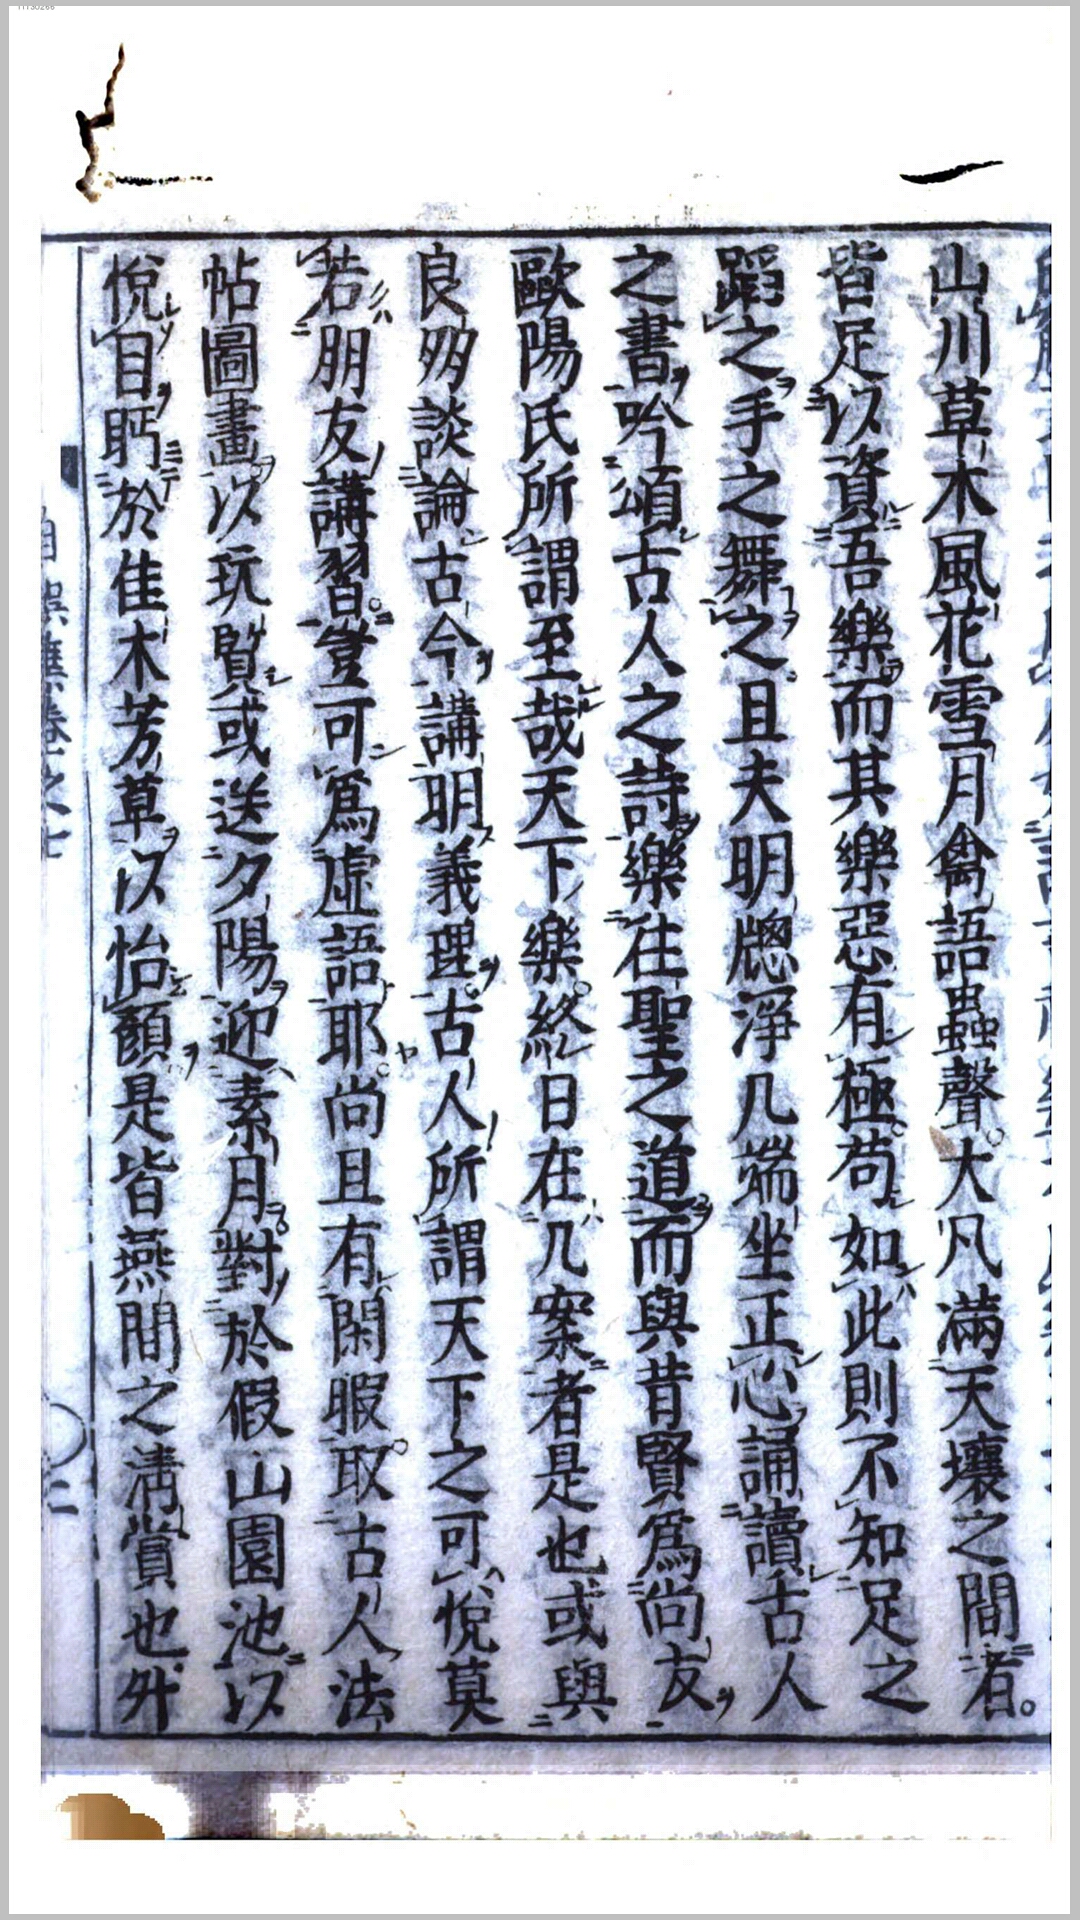 山川草木風花雪月禽語蟲聲大凡滿天壤之間者
皆足以資吾樂而其樂惡有極苟如此則不知足之
蹈之手之舞之且夫明牎淨几端坐正心誦讀古人
之書吟頌古人之詩樂往聖之道而與昔賢爲尚友
歐陽氏所謂至哉天下樂終日在几案者是也或與
良朋談論古今講明義理古人所謂天下之可悅莫
若朋友講習豈可爲虛語耶尚且有閑暇取古人法
帖圖畫以玩賢或送夕陽迎素月對於假山園池以
悅目眄於佳木芳草以怡顏是皆燕間之淸賞也外
自娛集卷之七
〇二